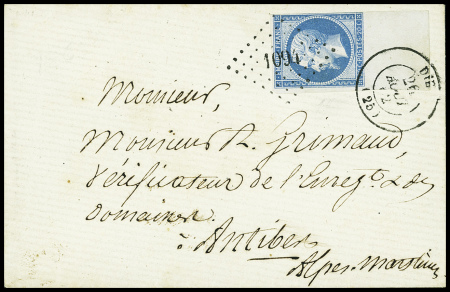 1094
DIE
(25)
Monsieur,
Monsieur A. Grimaud,
Vérificateur de l'Enregt. & des
Domaines
à Antibes
Alpes-Maritimes